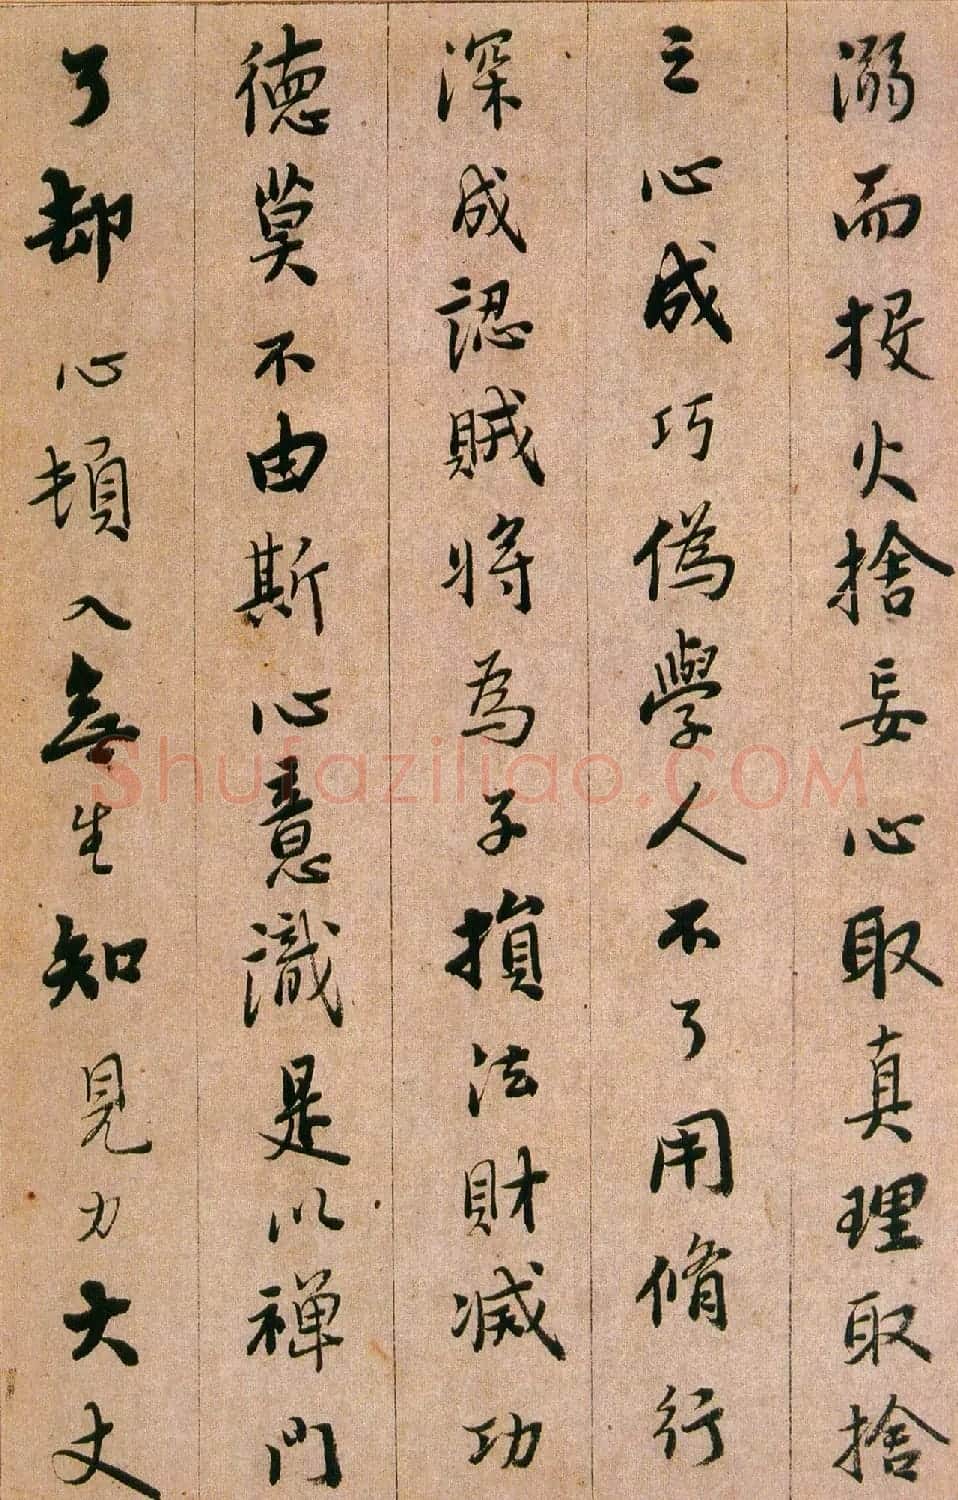 溺而投火捨妄心取真理取捨
之心成巧偽學人不了用脩行
深成認賊將為子損法財滅功
德莫不由斯心意識是以禪門
了却心頓入無生知見力大丈
Shufaziliao.COM